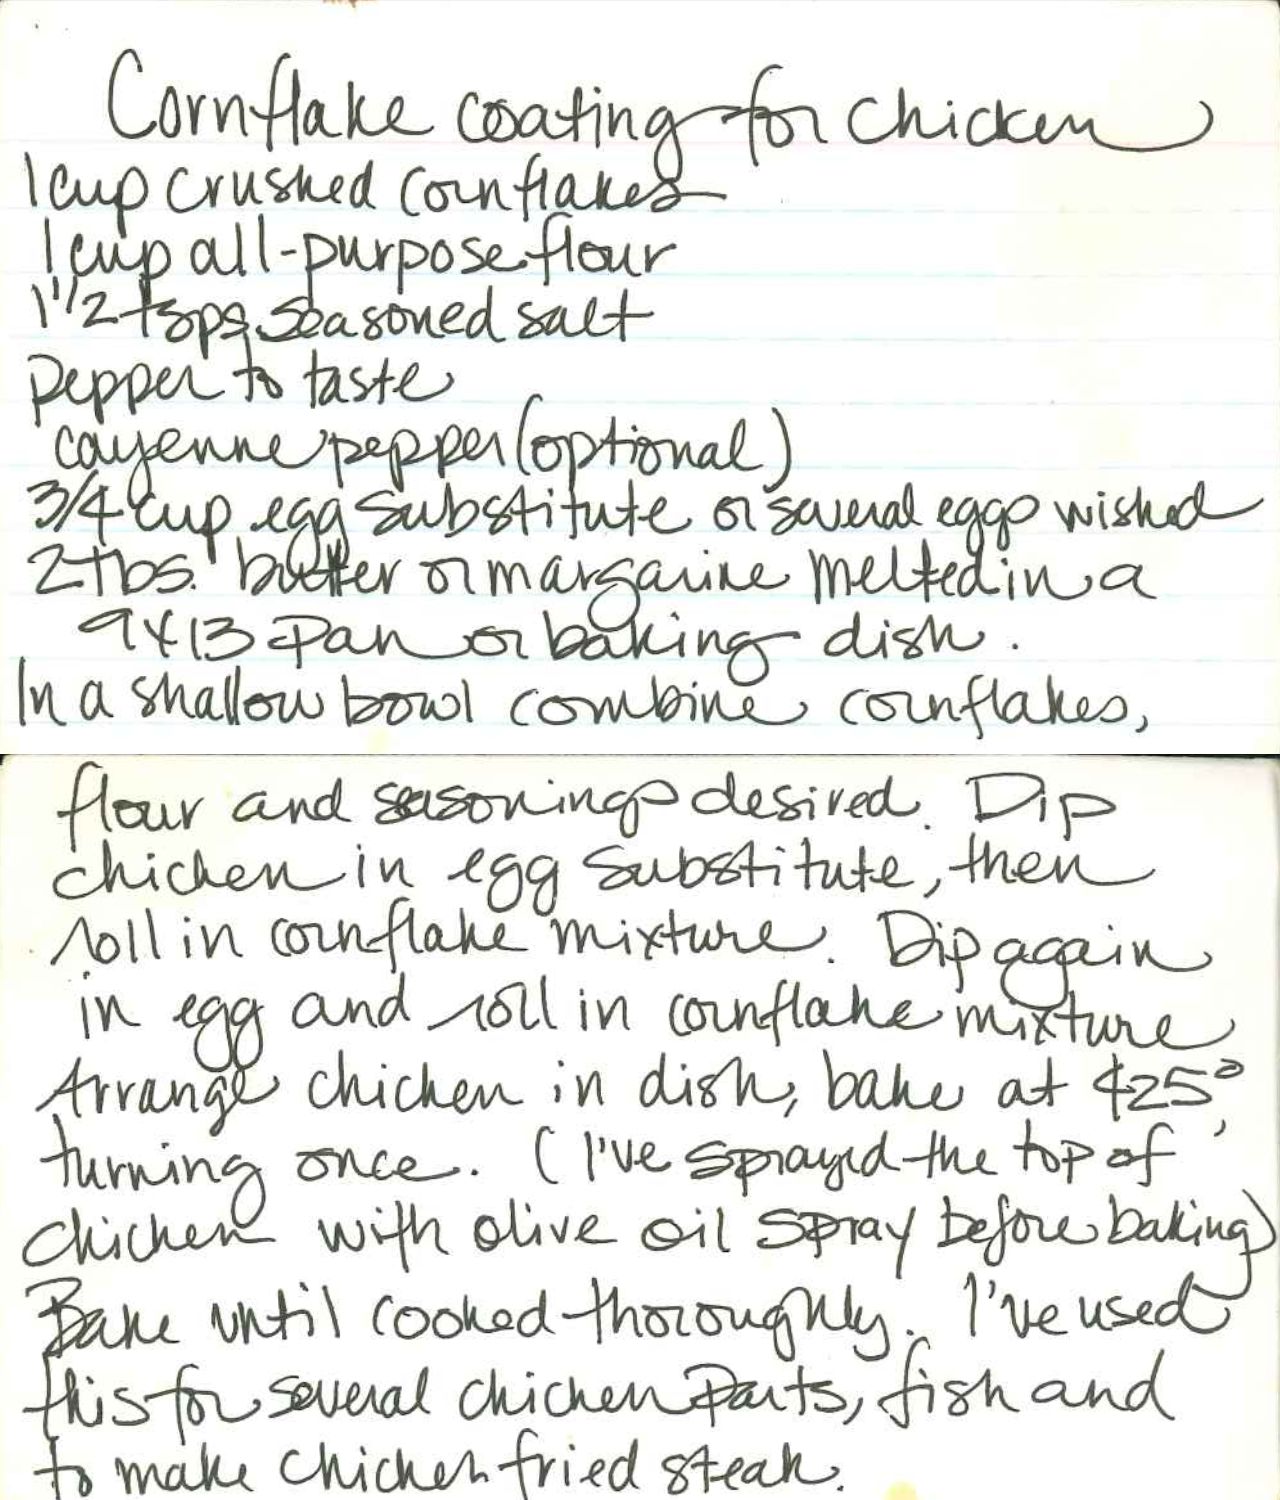 Cornflake coating for chicken
1 cup crushed cornflakes
1 cup all-purpose flour
1 1/2 tsps seasoned salt
Pepper to taste
cayenne pepper (optional)
3/4 cup egg substitute or several eggs wisked
2 tbs. butter or margarine melted in a
9x13 pan or baking dish.
In a shallow bowl combine cornflakes,
flour and seasonings desired. Dip
chicken in egg substitute, then
roll in cornflake mixture. Dip again
in egg and roll in cornflake mixture
Arrange chicken in dish, bake at 425°,
turning once. (I've sprayed the top of
chicken with olive oil spray before baking)
Bake until cooked thoroughly. I've used
this for several chicken parts, fish and
to make chicken fried steak.